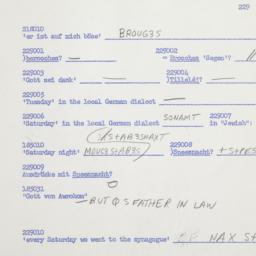 229
218010
'er ist auf mich böse' BROUGƷS
229001 229002
)berochen? — = Broochen 'Segen'? //
229003 229004
'Gott sei dank' — )Tilleld?! —
229005
'Tuesday' in the local German dialect —
229006
'Saturday' in the local German dialect SONAMT 229007
in "Jewish":
185010 229008
'Saturday night' )Sneenacht?
229009
Ausdrücke mit Sneenacht?
185031
"Gott von Awrohom"
—BUT Q S FATHER IN LAW
229010
'every Saturday we went to the synagogue' MAX